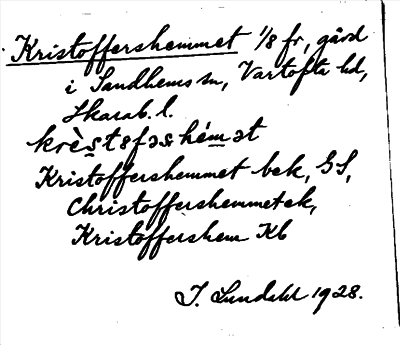 Kristoffershemmet 1/8 fr, gård
i Sandhems sn, Vartofta hd,
Skarab. l.
krès̱tɛfəs hém̱ət
Kristoffershemmet bek, GS,
Christoffershemmet ek,
Kristoffershem Kb
I. Lundahl 1928.